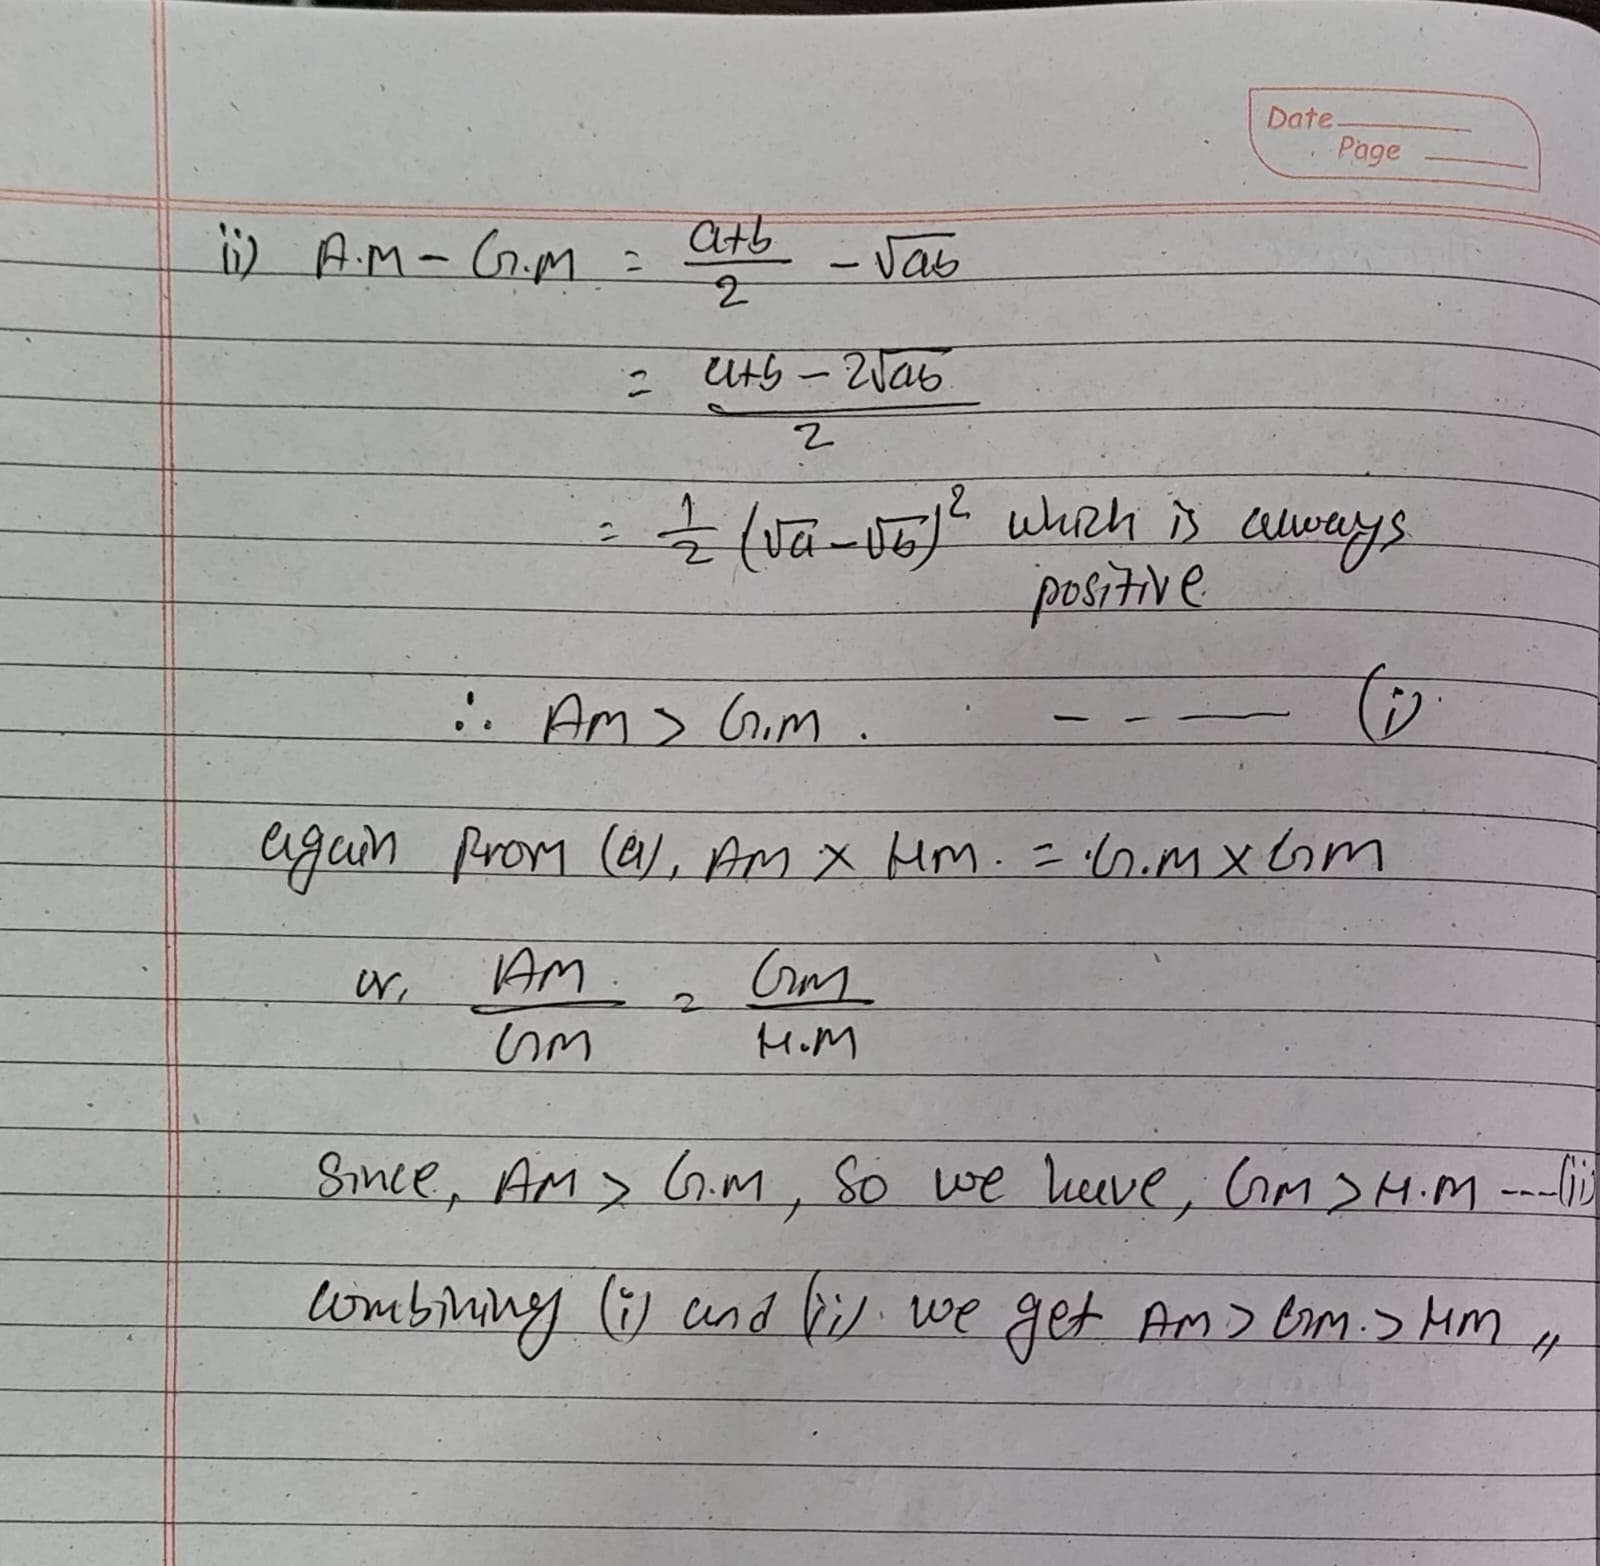 Date
Page
ii) A.M - G.M = a+b/2 - √ab
= a+b - 2√ab/2
= 1/2 (√a - √b)² which is always
positive.
∴ AM > G.M. - - — (i)
again from (a), AM × HM. = G.M × GM
or, AM/GM = GM/H.M
Since, AM > G.M, So we have, GM > H.M ---(ii)
combining (i) and (ii). we get AM > GM. > HM „